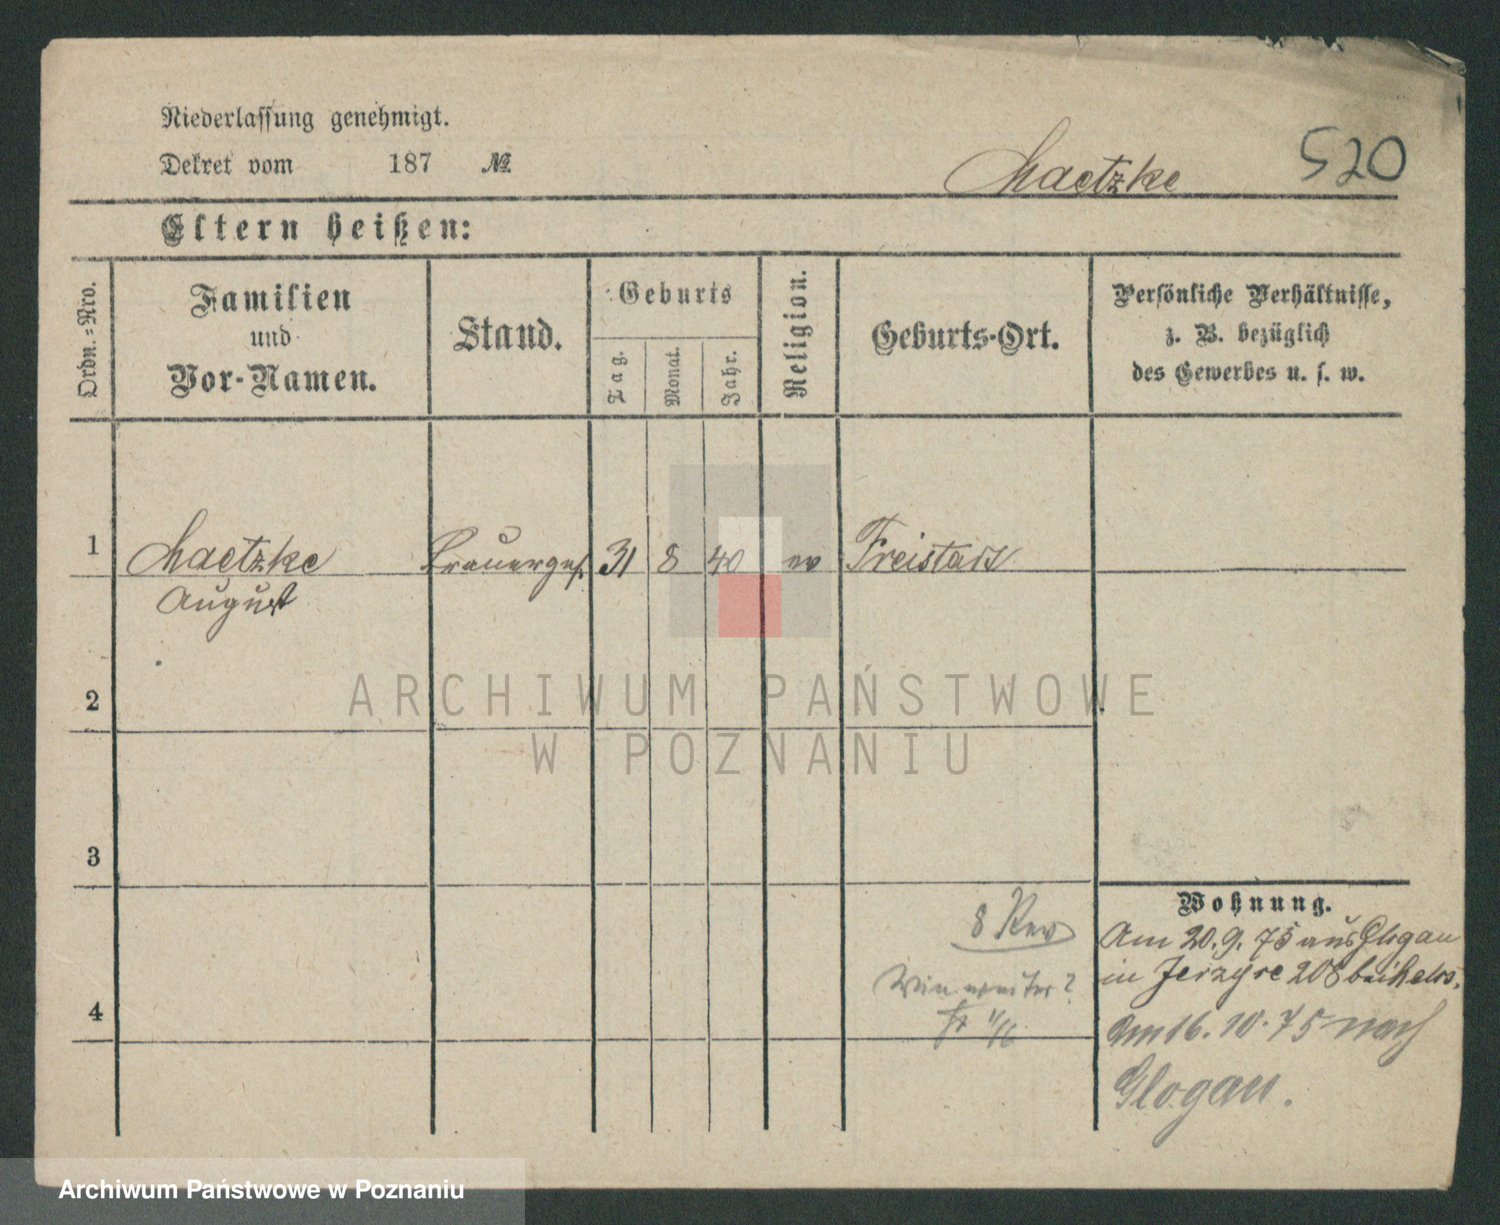 Niederlassung genehmigt.
Dekret vom 187 №
Maetzke 520
Eltern heißen:
Ordn.-Nro.
Familien
und
Vor-Namen.
Stand.
Geburts
Tag.
Monat.
Jahr.
Religion.
Geburts-Ort.
Persönliche Verhältnisse,
z. B. bezüglich
des Gewerbes u. s. w.
1 Maetzke Brauerges. 31 8 40 ev Freistadt
August
2
3
4
ARCHIWUM PAŃSTWOWE
W POZNANIU
8 Rev
weiter?
Wohnung.
Am 20. 9. 75 aus Glogau
in Jerzyce 208 bei
Am 16. 10. 75 nach
Glogau.
Archiwum Państwowe w Poznaniu